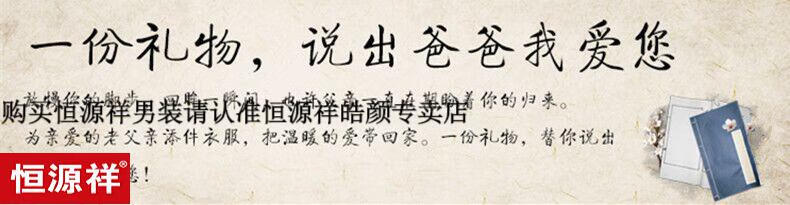 一份礼物，说出爸爸我爱您
放慢你的脚步，回眸一瞬间，也许父亲一直在期盼着你的归来。
购买恒源祥男装请认准恒源祥皓颜专卖店
为亲爱的老父亲添件衣服，把温暖的爱带回家。一份礼物，替你说出
恒源祥®
您！